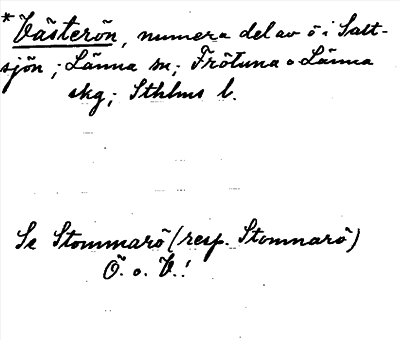 *Västerön, numera del av ö i Salt-
sjön; Länna sn; Frötuna o Länna
skg; Sthlms l.
Se Stommarö (resp. Stomnarö)
Ö. o. V.!